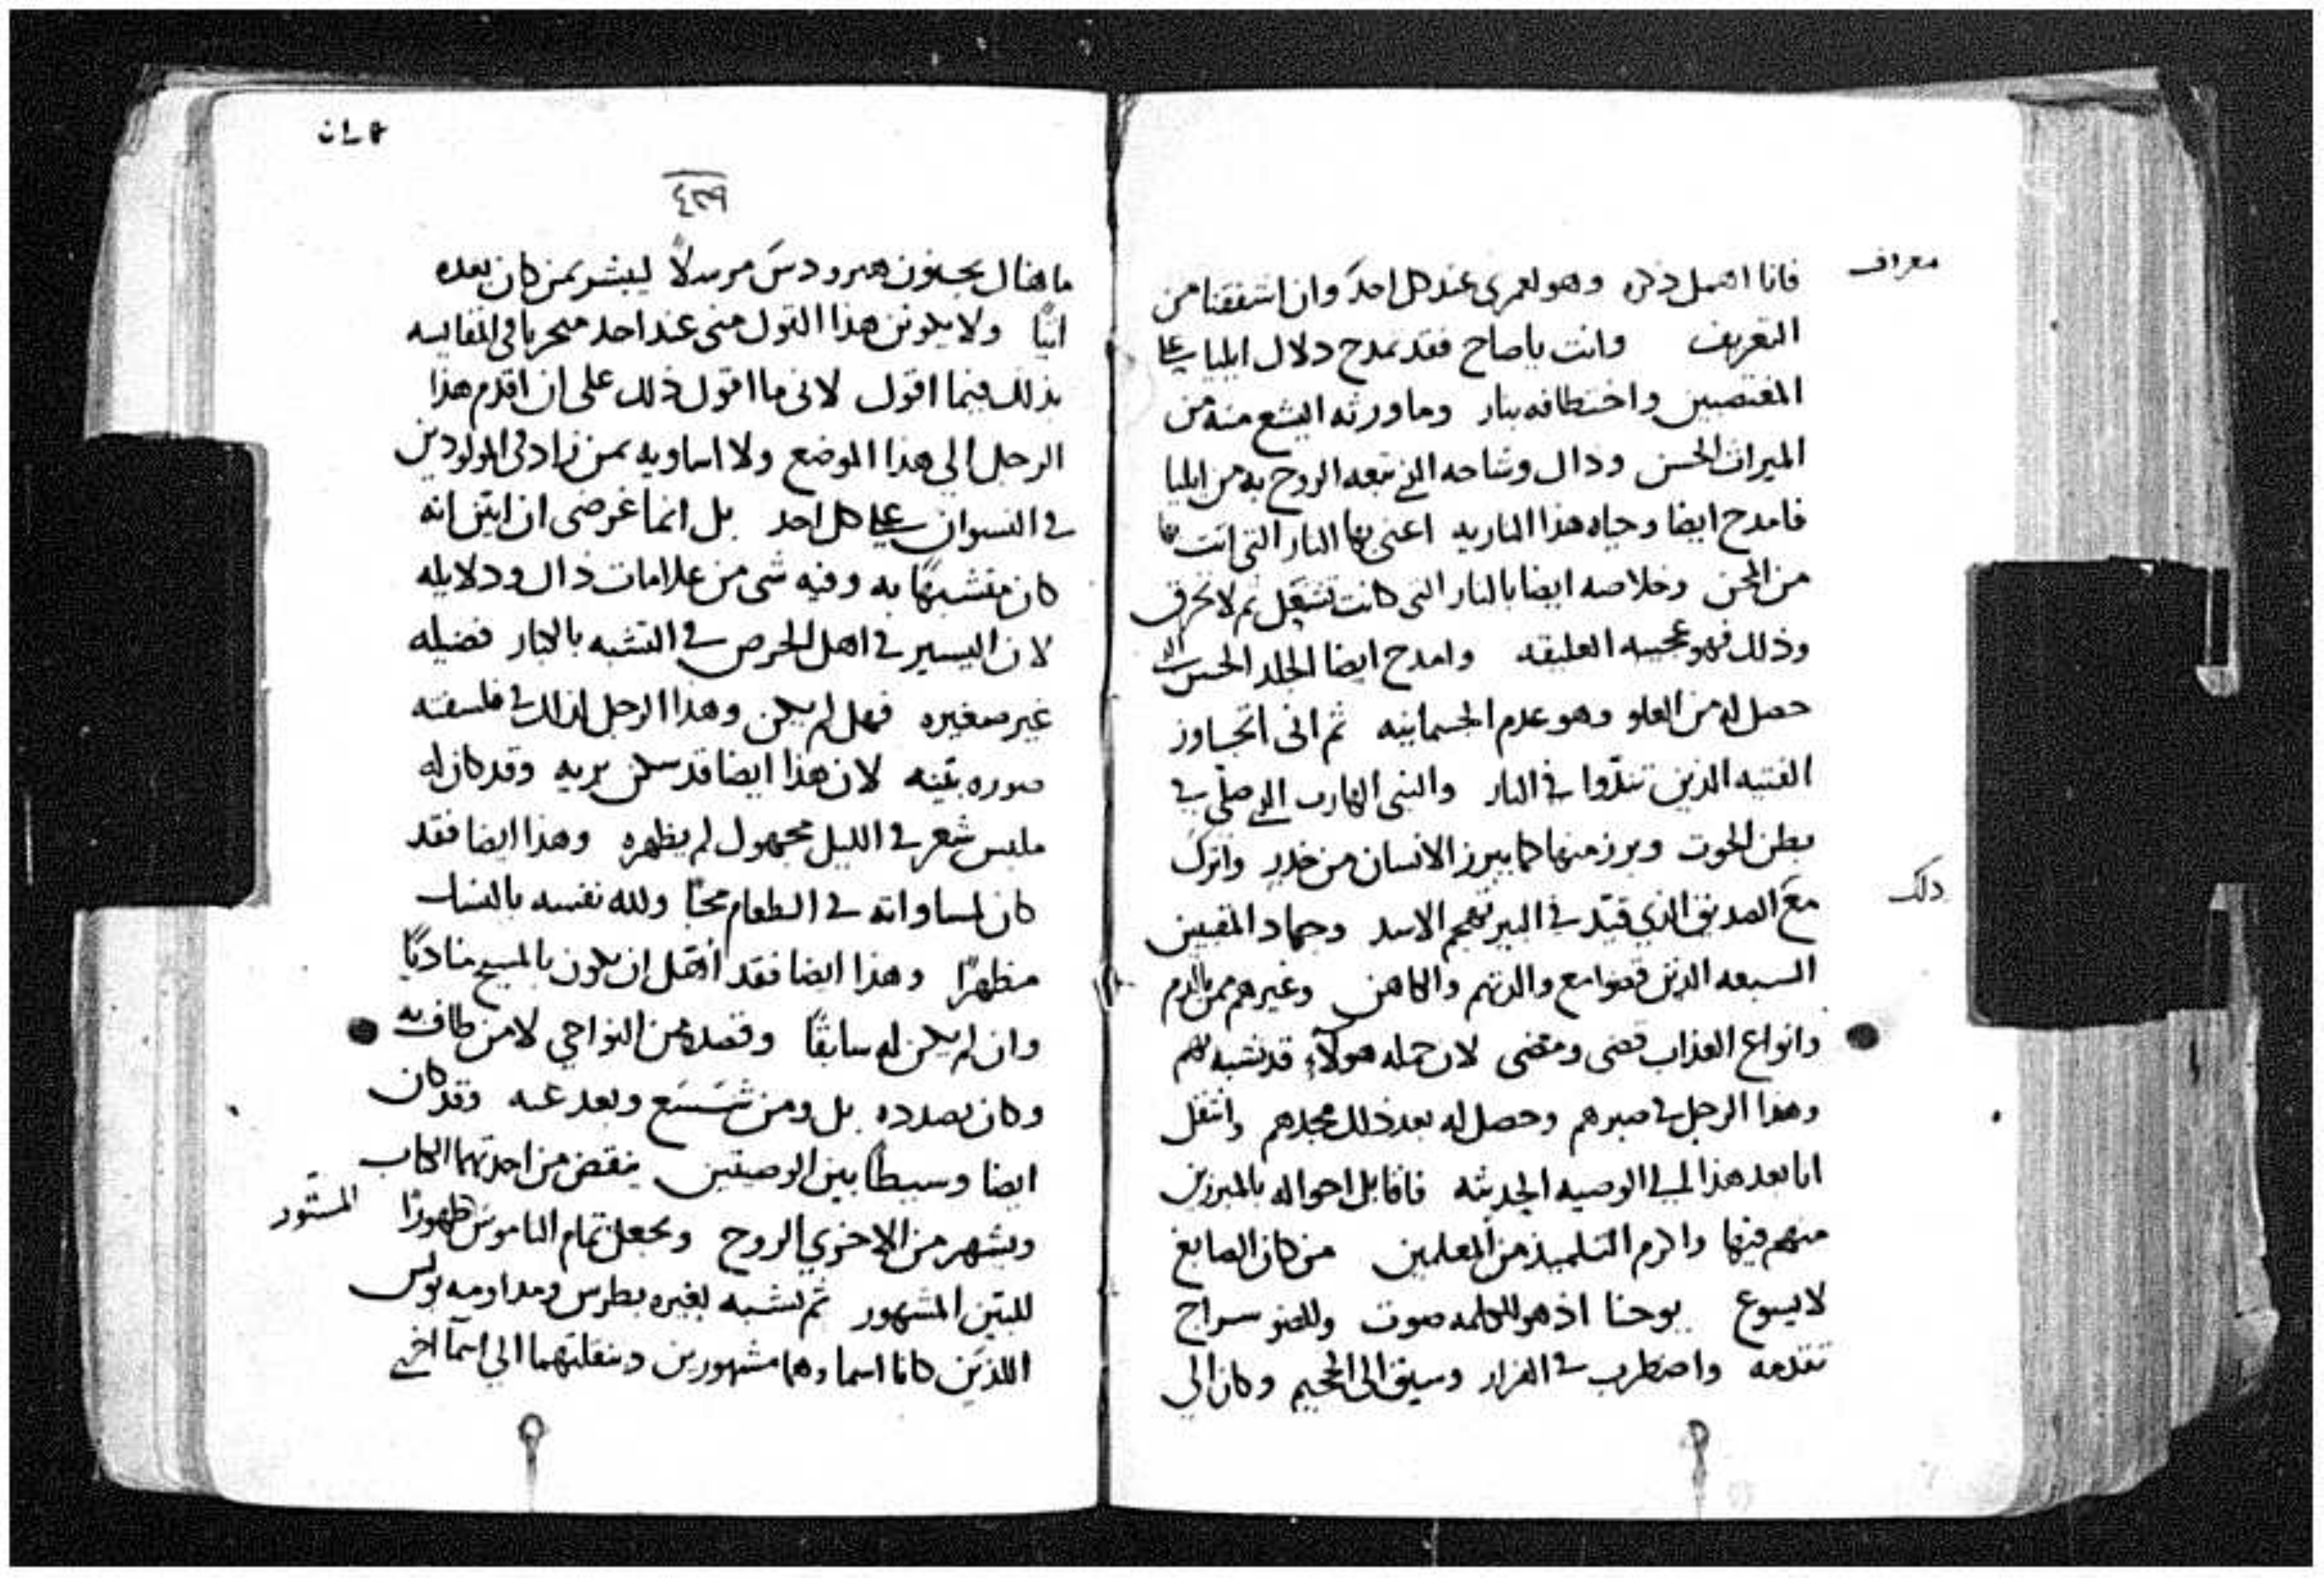 معراف
فانا اهمل ذكره وهو لعمري عند كل احد وان اشفقنا من
التعريف وانت ياصاح فقد تمدح دلال ايليا على
المغتصبين واختطافه بنار وما ورثه اليشع منه من
الميراث الحسن وذاك وشاحه الذي تبعه الروح به من ايليا
فامدح ايضا وحياه هذا الناريه اعني بها النار التي اتت بها
من المحن وخلاصه ايضا بالنار التي كانت تشعل ثم لا تحرق
وذلك فهو عجيبه العليقه وامدح ايضا الجلد الحسن الذي
حصل له من العلو وهو عدم الجسمانيه ثم اني اتجاوز
الفتيه الذين تندّوا في النار والنبي الهارب الذي صلى في
بطن الحوت وبرز منها كما يبرز الانسان من خدر واترك
ذلك
مع الصديق الذي قيّد في البير فم الاسد وجهاد المقبيين
السبعه الذين قضوا مع والدتهم والكاهن وغيرهم ممن بالدم
وانواع العذاب قضى ومضى لان جمله هولآء قد تشبه بهم
وهذا الرجل في صبرهم وحصل له بعد ذلك مجدهم وانتقل
انا بعد هذا الى الوصيه الحديثه فاقابل احواله بالمبرزين
منهم فيها واكرم التلميذ من المعلمين من كان الصابغ
لايسوع يوحنا اذ هو للكلمه صوت وللضو سراج
تقدمه واضطرب في القرار وسبق الى الجحيم وكان الي
٤٣٩
ما هنال بجنون هيرودس مرسلاً ليبشر بمن كان بعده
اتيًا ولا يكونن هذا القول مني عند احد متحريا في المقايسه
بذلك فيما اقول لاني ما اقول ذلك على ان اقدم هذا
الرجل الي هذا الموضع ولا اساويه بمن زاد في المولودين
في النسوان على كل احد بل انما غرضي ان ابين انه
كان متشبهًا به وفيه شي من علامات ذاك ودلايله
لان اليسير في اهل الحرص في التشبه بالكبار فضيله
غير صغيره فهل لم يكن وهذا الرجل لذاك في فلسفته
صوره بيّنه لان هذا ايضا قد سكن بريه وقد كان له
ملبس شعر في الليل مجهول لم يظهره وهذا ايضا فقد
كان لمساواته في الطعام محبًا ولله نفسه بالنسك
مطهرًا وهذا ايضا فقد اهّل ان يكون بالمسيح مناديًا
وان لم يكن له سابقًا وقصده من النواحي لا من طاف به
وكان بصدده بل ومن شسع وبعد عنه وقد كان
ايضا وسيطًا بين الوصيتين ينقض من احدتهما الكتاب
ويشهر من الاخري الروح ويجعل تمام الناموس ظهورًا المستور
للبتين المشهور ثم تشبه بغيره بطرس ومداومه بولس
اللذين كانا اسماوهما مشهورين ونقلتهما الي اسمآ اخرى